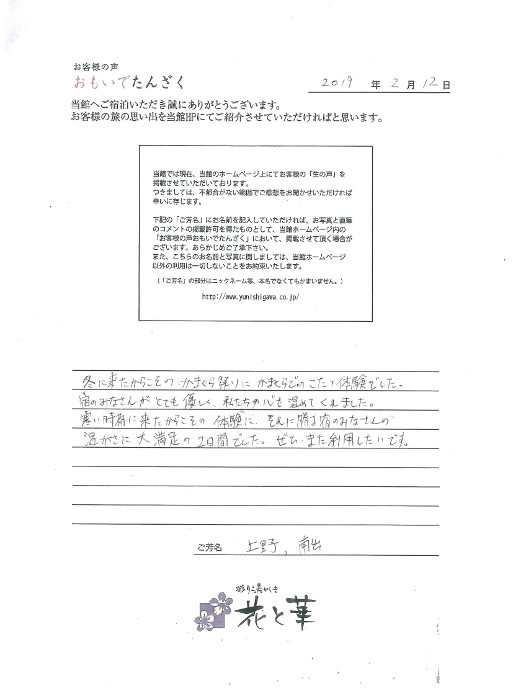 お客様の声
おもいでたんざく
2019 年 2 月 12 日
当館へご宿泊いただき誠にありがとうございます。
お客様の旅の思い出を当館HPにてご紹介させていただければと思います。
当館では現在、当館のホームページ上にてお客様の「生の声」を
掲載させていただいております。
つきましては、不都合がない範囲でご感想をお聞かせいただければ
幸いに存じます。
下記の「ご芳名」にお名前を記入していただければ、お写真と直筆
のコメントの掲載許可を得たものとして、当館ホームページ内の
「お客様の声おもいでたんざく」において、掲載させて頂く場合が
ございます。あらかじめご了承下さい。
また、こちらのお名前と写真に関しましては、当館ホームページ
以外の利用は一切しないことをお約束いたします。
(「ご芳名」の部分はニックネーム等、本名でなくてもかまいません。)
http://www.yunishigawa.co.jp/
冬に来たからこその、かまくら祭りに かまくらでの こたつ体験でした。
宿のみなさんが とても 優しく、私たちの心も 温めて くれました。
寒い時期に来たからこその 体験に、それに勝る宿のみなさんの
温かさに 大満足の 2日間でした。ぜひ、また利用したいです。
ご芳名 上野、南出
彩り湯かしき
花と華